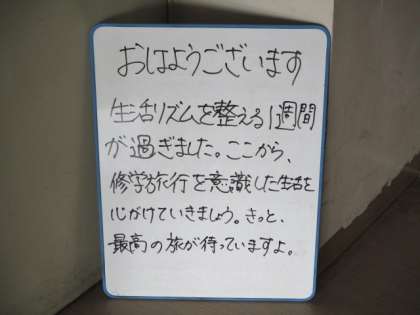 おはようございます
生活リズムを整える1週間
が過ぎました。ここから、
修学旅行を意識した生活を
心がけていきましょう。きっと、
最高の旅が待っていますよ。